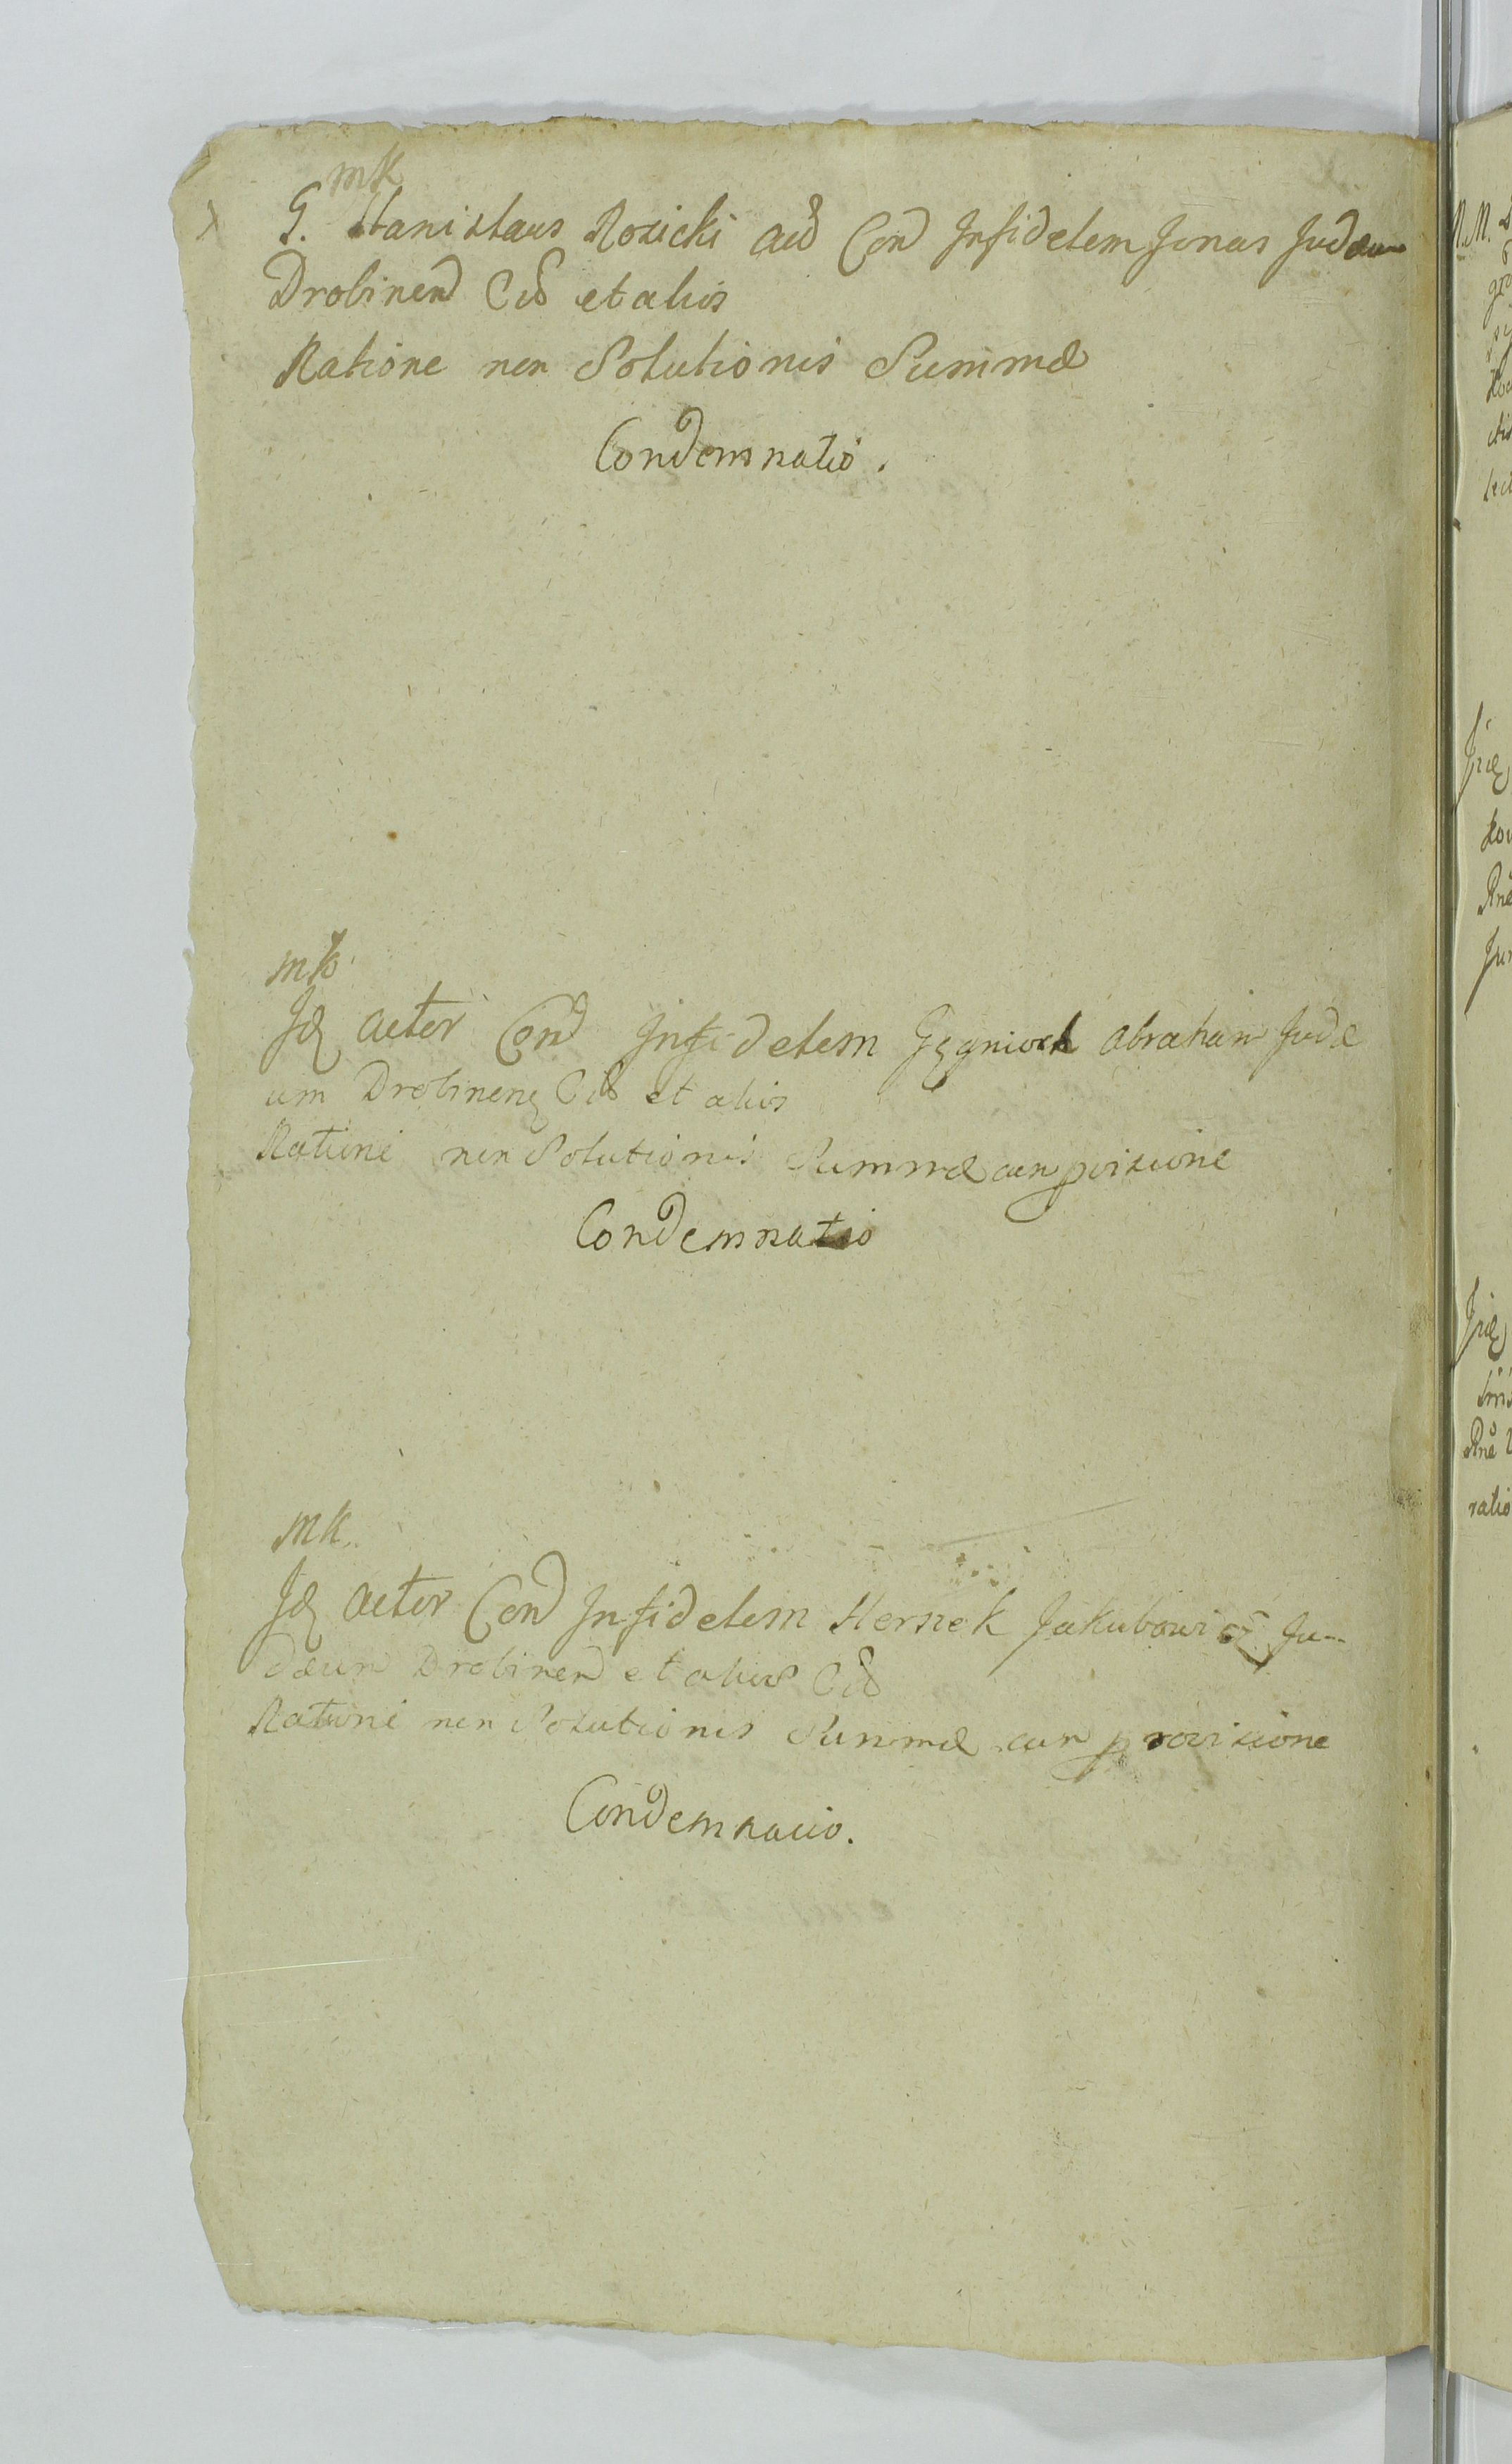 mk
G. Stanislaus Rosicki acto Con Infidelem Jonas Judæum
Drobinen Cit et alios
Ratione non Solutionis Summæ
Condemnatio.
mk
Id actor Con Infidelem Abraham Judæ
um Drobinen Cit et alios
Ratione non Solutionis Summæ cum provisione
Condemnatio
mk
Id actor Con Infidelem Hersek Jakubowicz Ju-
dæum Drobinen et alios Cit
Ratione non Solutionis Summæ cum provisione
Condemnatio.